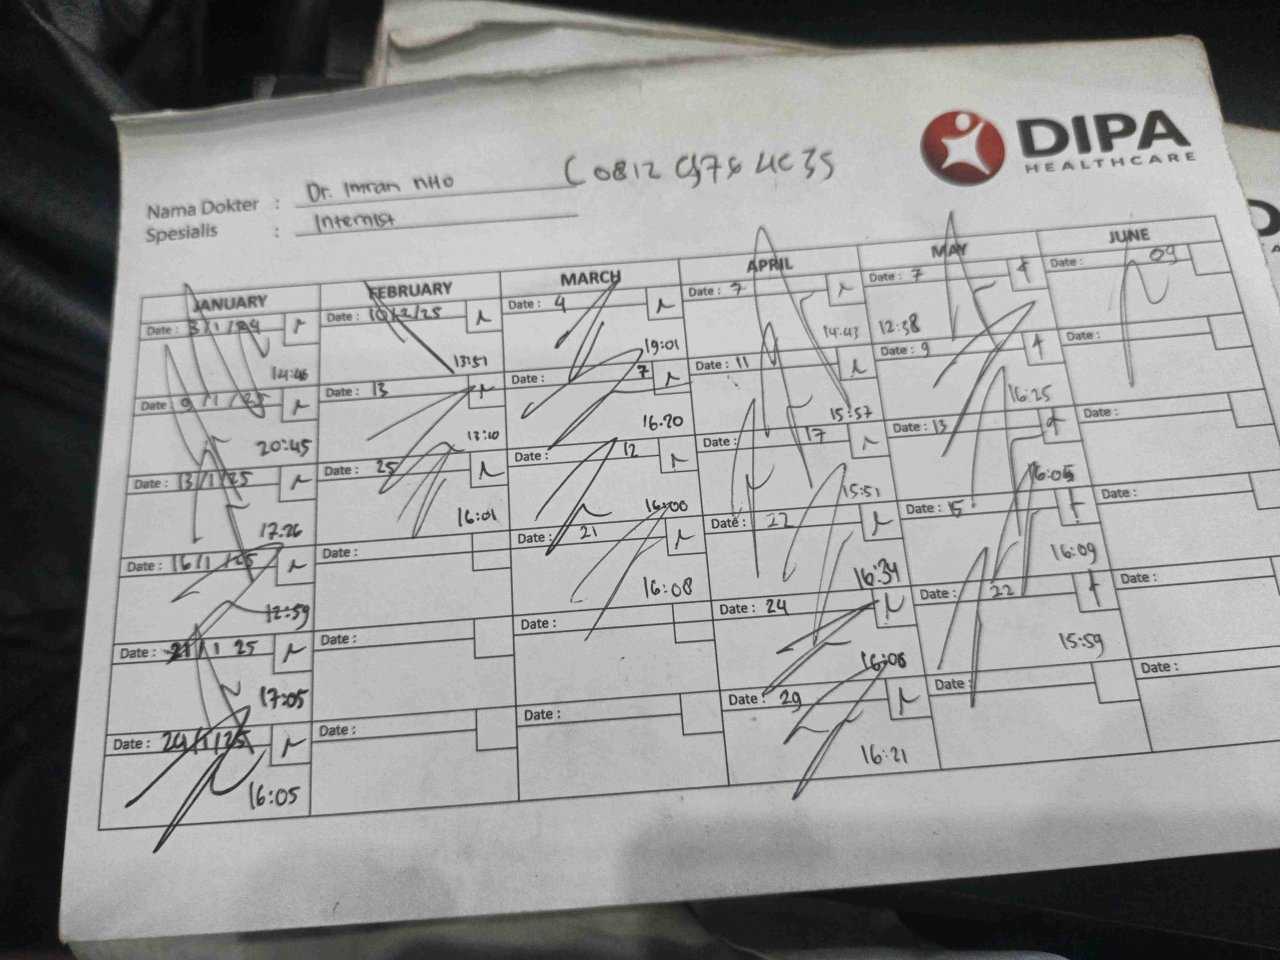 DIPA
HEALTHCARE
Nama Dokter : Dr. Imran NHO
Spesialis : Internist
JANUARY FEBRUARY MARCH APRIL MAY JUNE
Date : 3/1/24 Date : 10/2/25 Date : 4 Date : 7 Date : 7 Date : 09
14:46 13:51 19:01 14:43 12:38
Date : 9/1/25 Date : 13 Date : 7 Date : 11 Date : 9 Date :
20:45 13:10 16.20 15:57 16:25
Date : 13/1/25 Date : 25 Date : 12 Date : 17 Date : 13 Date :
17.26 16:01 16:00 15:51 16:05
Date : 16/1/25 Date : Date : 21 Date : 22 Date : 15 Date :
12:59 16:08 16:34 16:09
Date : 21/1 25 Date : Date : Date : 24 Date : 22 Date :
17:05 16:08 15:59
Date : 24/1/25 Date : Date : Date : 29 Date : Date :
16:05 16:21